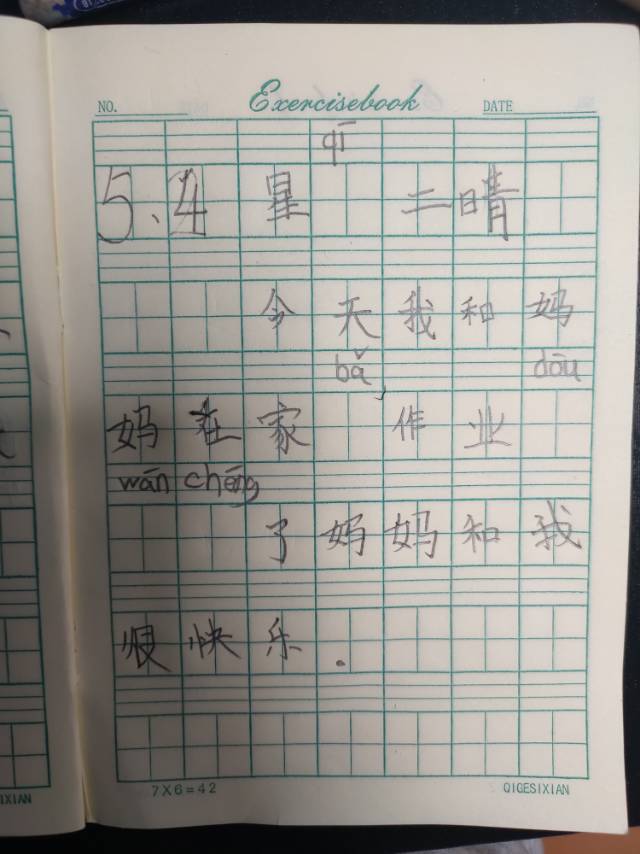 Exercisebook
NO. DATE
qī
5.4 星 二晴
今天我和妈
bǎ, dōu
妈在家 作业
wán chéng
了妈妈和我
恨快乐.
7X6=42 QIGESIXIAN
IXIAN